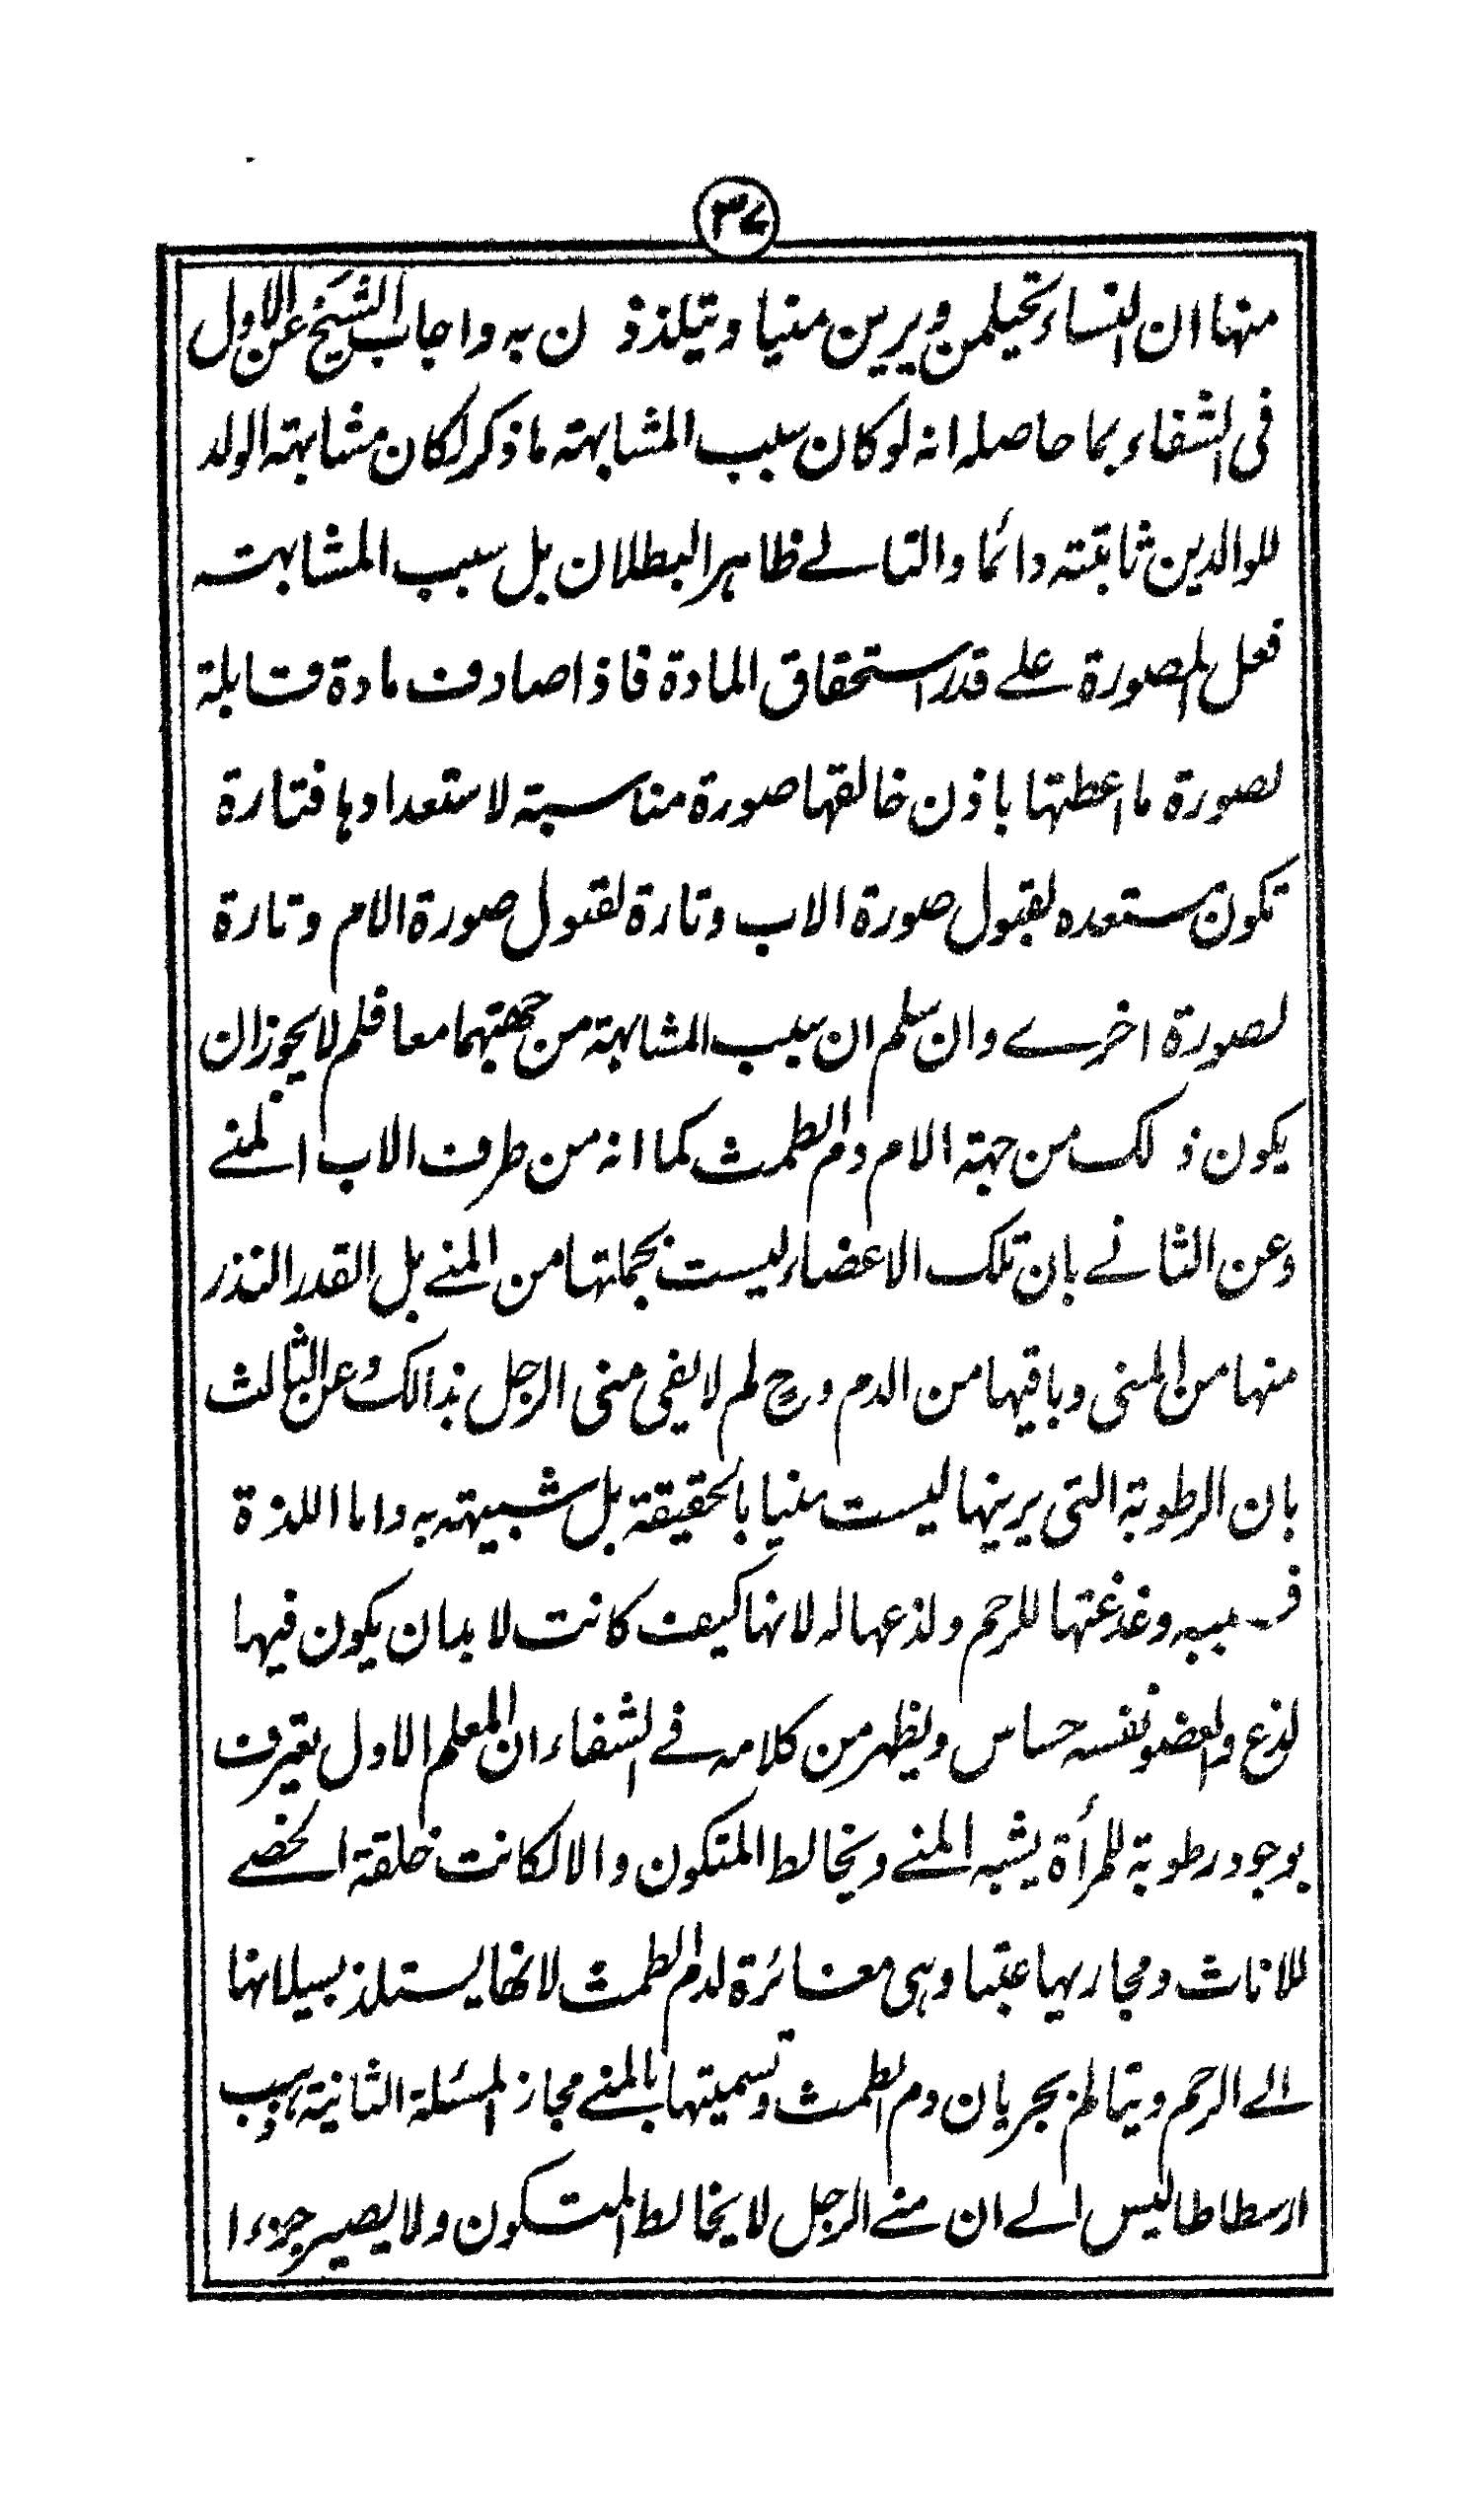 ٣٧
منها ان النساء تحيلمن ويرين منيا ويتلذذ ن به واجاب الشيخ عن الاول
فى الشفاء بما حاصله انه لو كان سبب المشابهته ما ذكر لكان مشابهته الولد
للوالدين ثابتته دائما والتالے ظاهر البطلان بل سبب المشابهته
فعل المصورة علے قدر استحقاق المادة فاذا صادف مادة قابلة
لصورة ما اعطتها باذن خالقها صورة مناسبته لاستعدادها فتارة
تكون مستعده لقبول صورة الاب وتارة لقبول صورة الام وتارة
لصورة اخرے وان سلم ان سبب المشابهة من جهتهما معا فلم لا يجوز ان
يكون ذ لك من جهته الام دم الطمث كما انه من طرف الاب المنے
وعن الثانے بان تلك الاعضاء ليست بجملتها من المنے بل القدر النذر
منها من المنى وباقيها من الدم وح لم لا يفى منى الرجل بذالك وعن الثالث
بان الرطوبة التى يرينها ليست منيا بالحقيقة بل شبيهته به واما اللذة
فسببه وغدغتها للرحم ولذعها له لانها كيف كانت لا بد ان يكون فيها
لذع والعضو نفسه حساس ويظهر من كلامه فے الشفاء ان المعلم الاول يعترف
بوجود رطوبة للمرأة يشبه المنے ويخالط المتكون والا لكانت خلقة الخصے
للاناث ومجاريها عبثا وهى مغائرة لدم الطمث لانها يستلذ بسيلانها
الے الرحم ويتالم بجريان دم الطمث وتسميتها بالمنے مجاز المسئلة الثانية ذهب
ارسطاطاليس الے ان منے الرجل لا يخالط المتكون ولا يصير جزءا